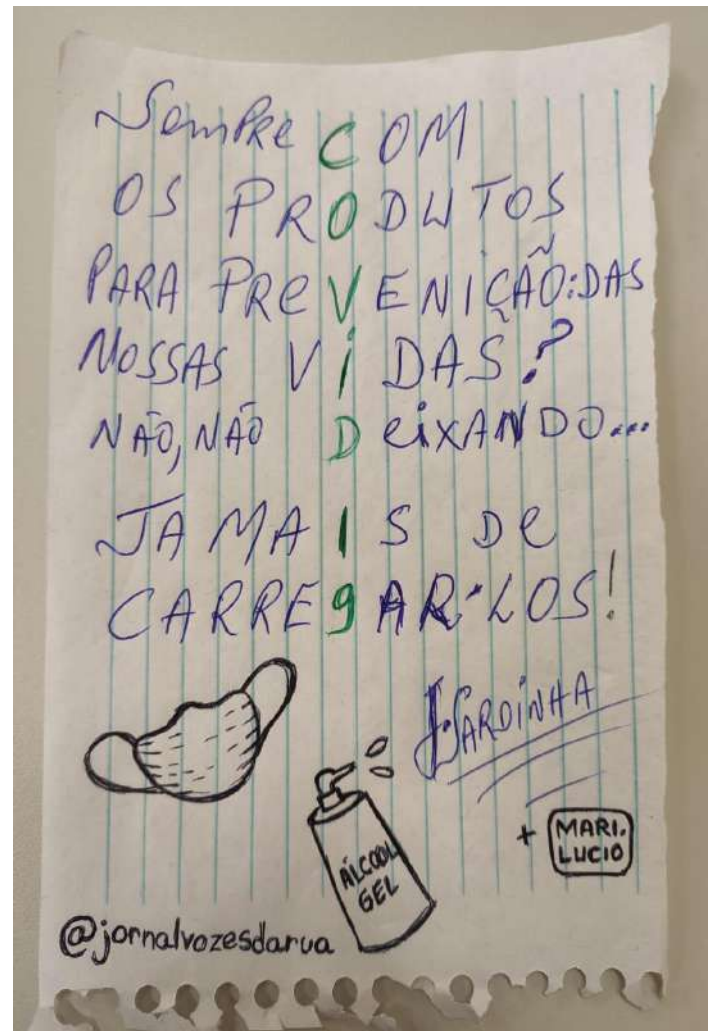 Sempre COM
OS PRODUTOS
PARA PREVENIÇÃO:DAS
NOSSAS VIDAS?
NÃO, NÃO DEIXANDO...
JAMAIS De
CARRE9AR-LOS!
J.SARDINHA
+ MARI.
LUCIO
ÁLCOOL
GEL
@jornalvozesdarua